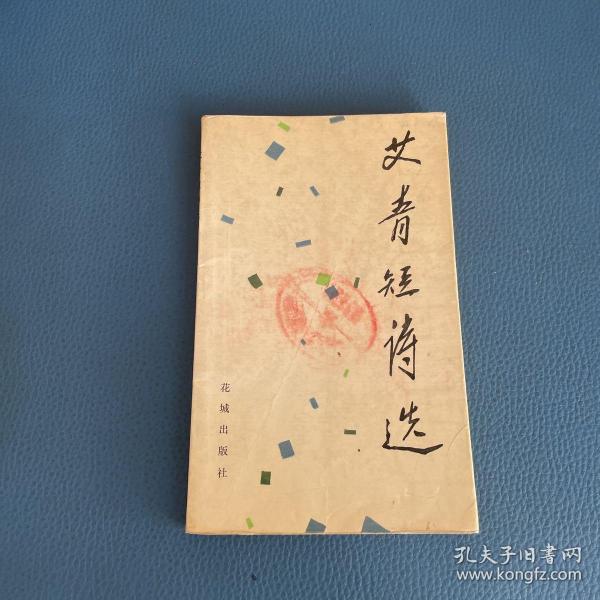 艾青短诗选
花城出版社
孔夫子旧書网
www.kongfz.com